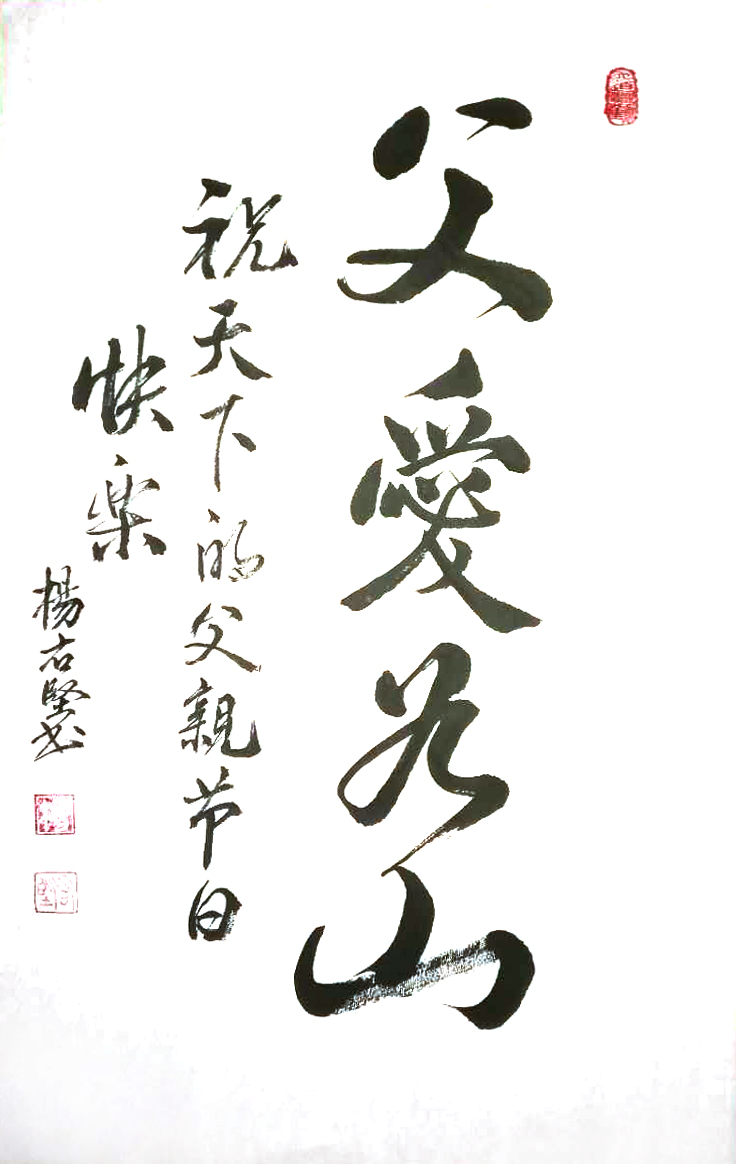 父愛如山
祝天下的父親节日
快楽
楊右堅书